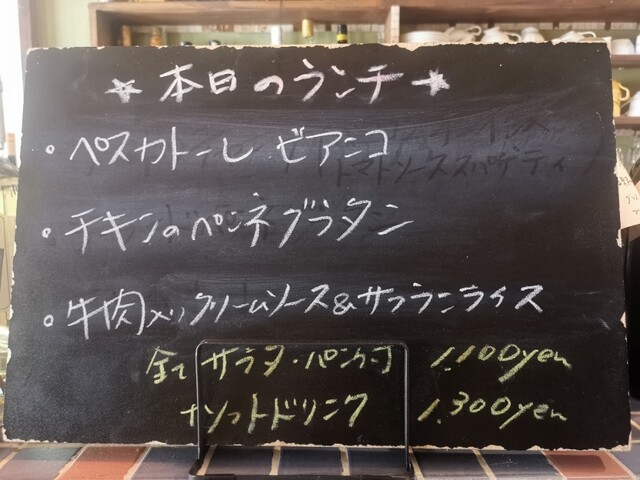 ☆ 本日のランチ ☆
。ペスカトーレ ビアンコ
トマトソーススパゲティ
。チキンのペンネグラタン
。牛肉 クリームソース&サフランライス
全て サラダ・パン付 1.100yen
+ソフトドリンク 1.300yen